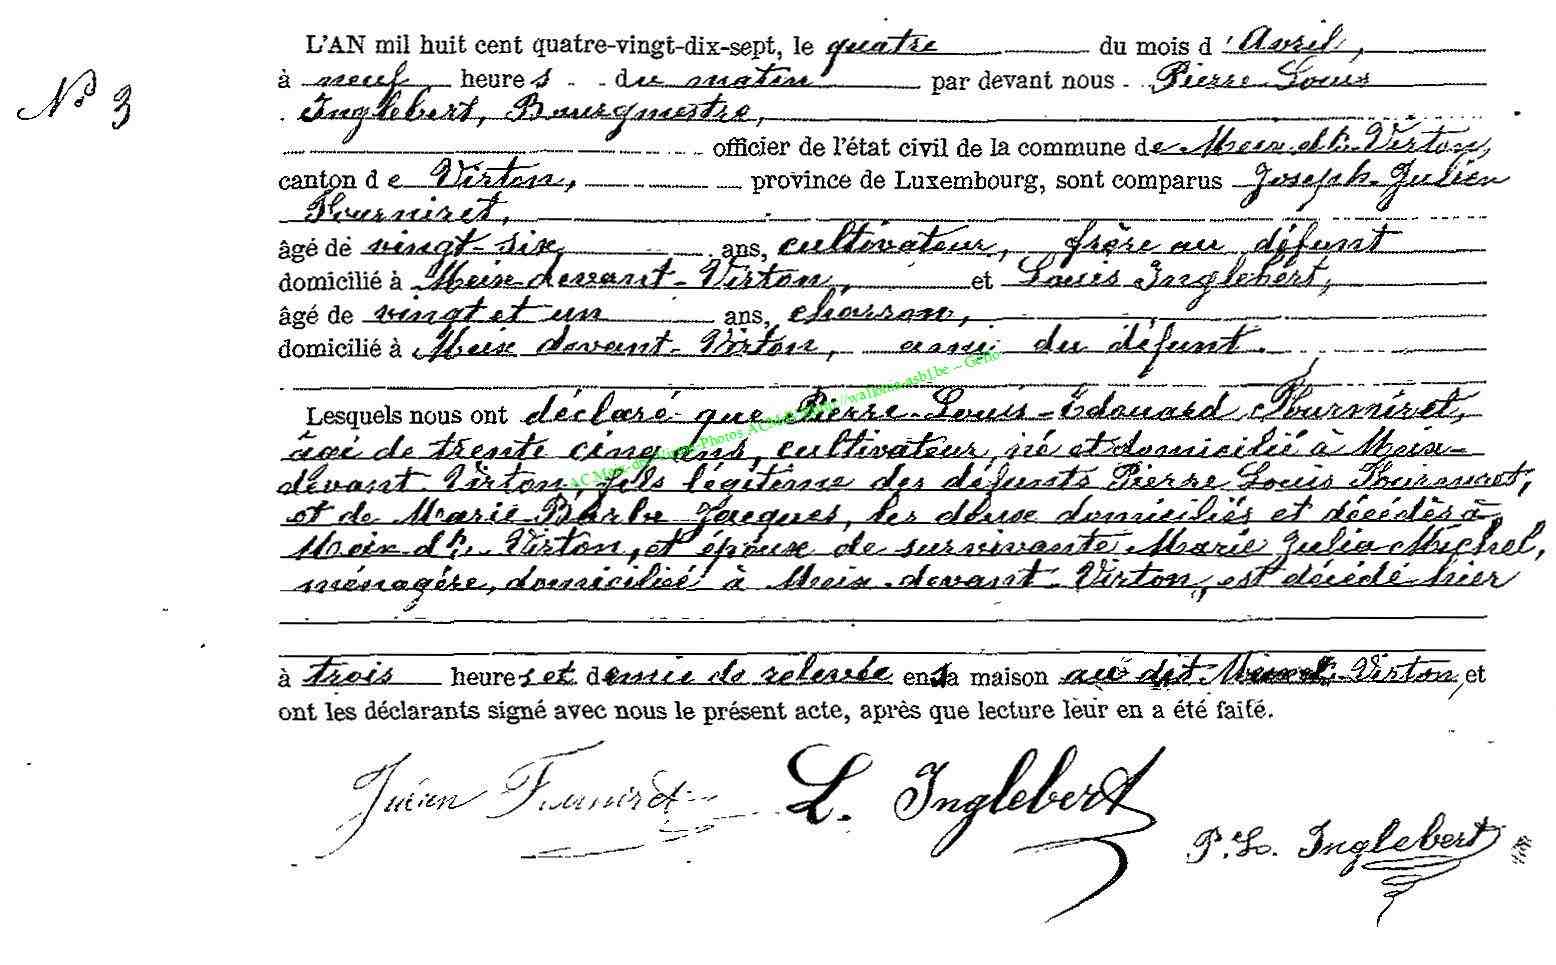 L'AN mil huit cent quatre-vingt-dix-sept, le quatre du mois d'Avril,
N° 3
à neuf heures du matin par devant nous Pierre Louis
Inglebert, Bourgmestre,
officier de l'état civil de la commune de Meix dt. Virton,
canton de Virton, province de Luxembourg, sont comparus Joseph Julien
Fourniret,
âgé de vingt-six ans, cultivateur, frère au défunt
domicilié à Meix devant-Virton, et Louis Inglebert,
âgé de vingt et un ans, charron,
domicilié à Meix devant-Virton, ami du défunt.
Lesquels nous ont déclaré que Pierre-Louis-Edouard Fourniret,
âgé de trente cinq ans, cultivateur, né et domicilié à Meix-
devant Virton, fils légitime des défunts Pierre Louis Fourniret,
et de Marie Barbe Jacques, les deux domiciliés et décédés à
Meix dt. Virton, et époux de survivante Marie Julia Michel,
ménagère, domiciliée à Meix-devant-Virton, est décédé hier
à trois heures et demie de relevée en sa maison au dit Meix dt. Virton, et
ont les déclarants signé avec nous le présent acte, après que lecture leur en a été faite.
Julien Fourniret L. Inglebert
P. L. Inglebert